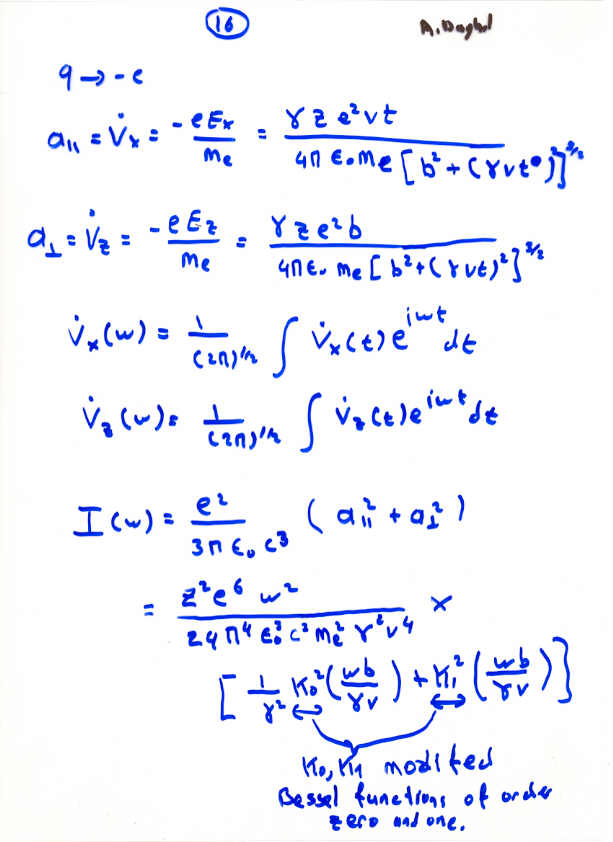 16
A. Dogbul
q → -e
a∥ = V̇x = -eEx / me = γ z e² v t / 4π ε₀ me [b² + (γvt)²]^3/2
a⊥ = V̇z = -eEz / me = γ z e² b / 4π ε₀ me [b² + (γvt)²]^3/2
V̇x(ω) = 1 / (2π)^1/2 ∫ V̇x(t) e^iωt dt
V̇z(ω) = 1 / (2π)^1/2 ∫ V̇z(t) e^iωt dt
I(ω) = e² / 3π ε₀ c³ (a∥² + a⊥²)
= z² e⁶ ω² / 24 π⁴ ε₀³ c³ me² γ² v⁴ ×
[1/γ² K₀² (ωb/γv) + K₁² (ωb/γv)]
K₀, K₁ modified
Bessel functions of order
zero and one.